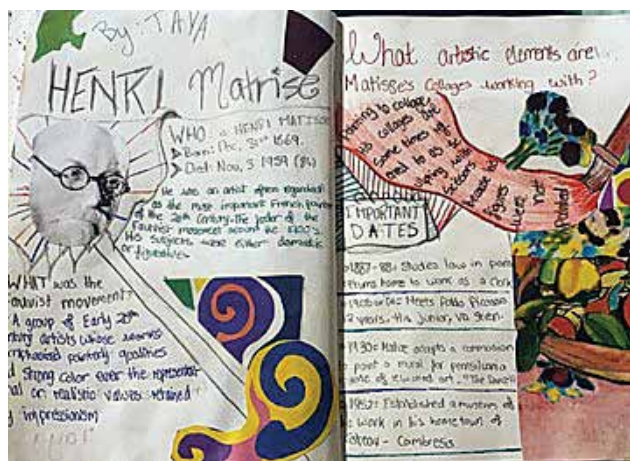 By: TAYA
HENRI Matrise
WHO: a HENRI MATISSE
Born: Dec, 31st 1869.
Died: Nov, 3 1954 (84)
He was an artist often regarded
as the most important French painter
of the 20th Century. The leder of the
Fauvist movement around the 1900's
His subjects were either domestic
or figurative.
WHAT was the
Fauvist movement?
A group of Early 20th
artists whose works
painterly qualities
strong color over the
on realistic values retained
impressionism
What artistic elements are
Matisse's collages working with?
to collage
his collages are
some times
ered to as
with
scissors
Matisse's
figures
were
not
Painted
IMPORTANT
DATES
1887-88: Studies law in paris
home to work as a clerk
Meets Pablo Picasso
2 years. His junior,
1930: accepts a commission
to paint a mural for
"The Dance"
1952: Established a museum of
work in his hometown of
Cateau - Cambresis